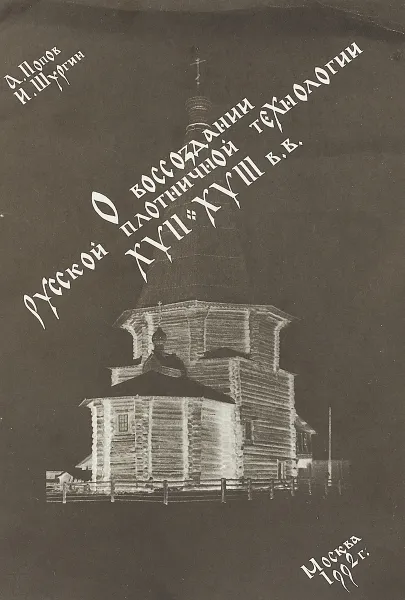 А. Попов
И. Шургин
О воссоздании
русской плотничной технологии
XVII-XVIII в.в.
Москва
1992 г.